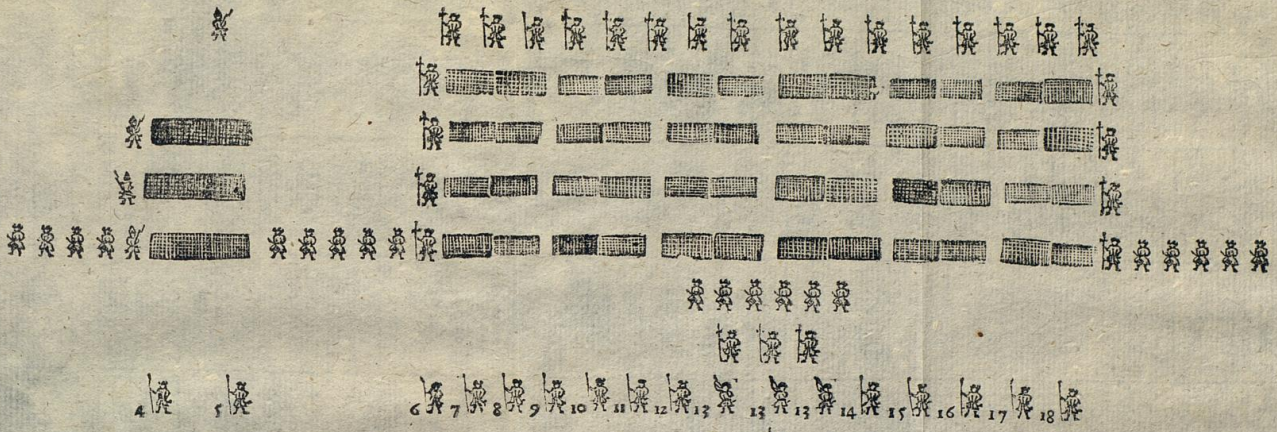 4 5 6 7 8 9 10 11 12 13 13 13 14 15 16 17 18